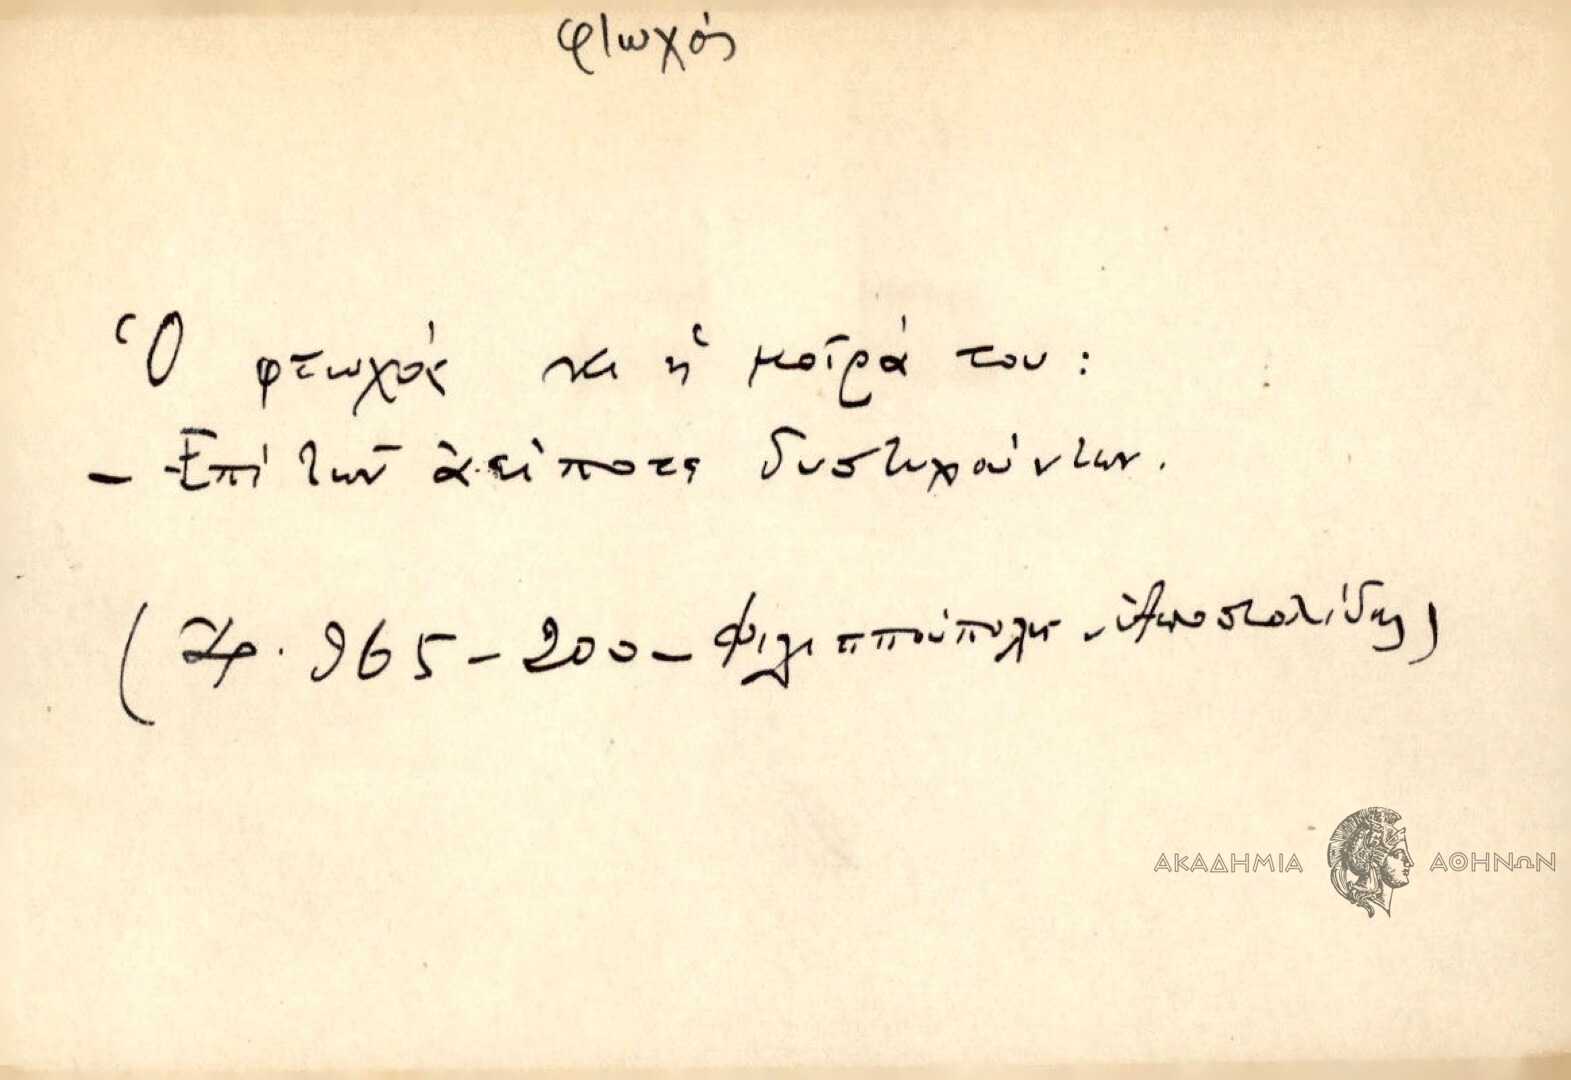 φτωχός
Ὁ φτωχός κι ἡ μοῖρά του:
– Ἐπί τῶν ἀείποτε δυστυχούντων.
(Χφ. 965 – 200 – Φιλιππούπολις – Ἀποστολίδης)
ΑΚΑΔΗΜΙΑ ΑΘΗΝΩΝ